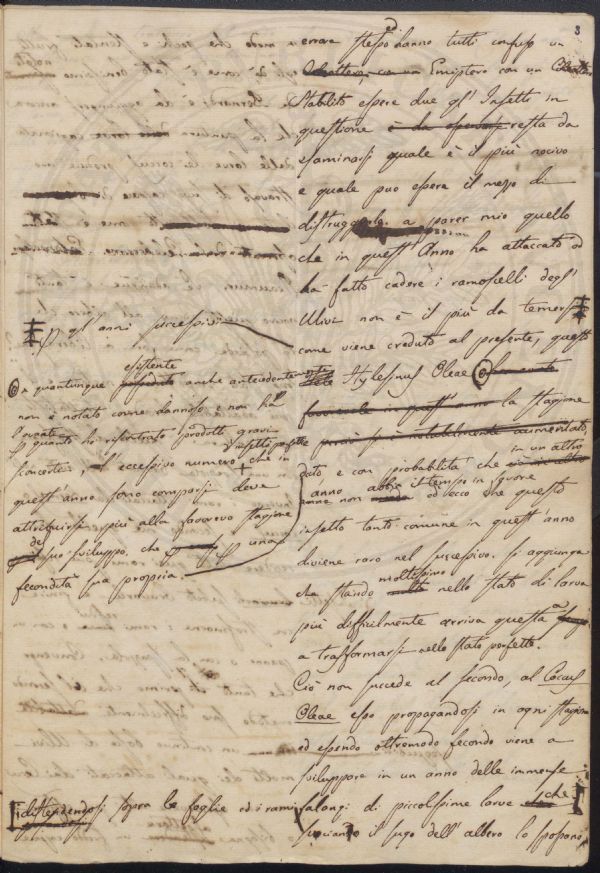 3
errore stesso ed hanno tutti confuso un
Coleottero, con un Emiptero con un Coleottero
Stabilito essere due gl' Insetti in
questione è da osservarsi resta da
esaminarsi quale è il più nocivo
e quale puo essere il mezzo di
distruggerlo. a parer mio quello
che in quest' Anno ha attaccato ed
ha fatto cadere i ramoscelli degl'
Ulivi non è il più da temersi
come viene creduto al presente, questo
Hylesinus Oleae
favorevole in quest' anno la stagione
perciò si notabilmente aumentato,
dato e con probabilità che in un altro
anno non abbia il tempo in favore
ed ecco che questo
insetto tanto comune in quest' anno
diviene raro nel successivo. si aggiunga
che stando moltissimo nello stato di larva
più difficilmente arriva questa
a trasformarsi nello stato perfetto.
Ciò non succede al secondo, al Cocus
Oleae esso propagandosi in ogni stagione
ed essendo oltremodo fecondo viene a
sviluppare in un anno delle immense
falangi di piccolissime larve che
succiando il sugo dell' albero lo spossano
gl' anni successivi
e quantunque esistente anche antecedente
non è notato come dannoso e non ha
quanto ho riscontrato prodotti gravi
sconcerti, l' eccessivo numero d'insetti perfetti che in
quest' anno sono comparsi deve
attribuirsi più alla favorevo stagione
del suo sviluppo, che per una
fecondità sua propria.
distendendosi sopra le foglie ed i rami